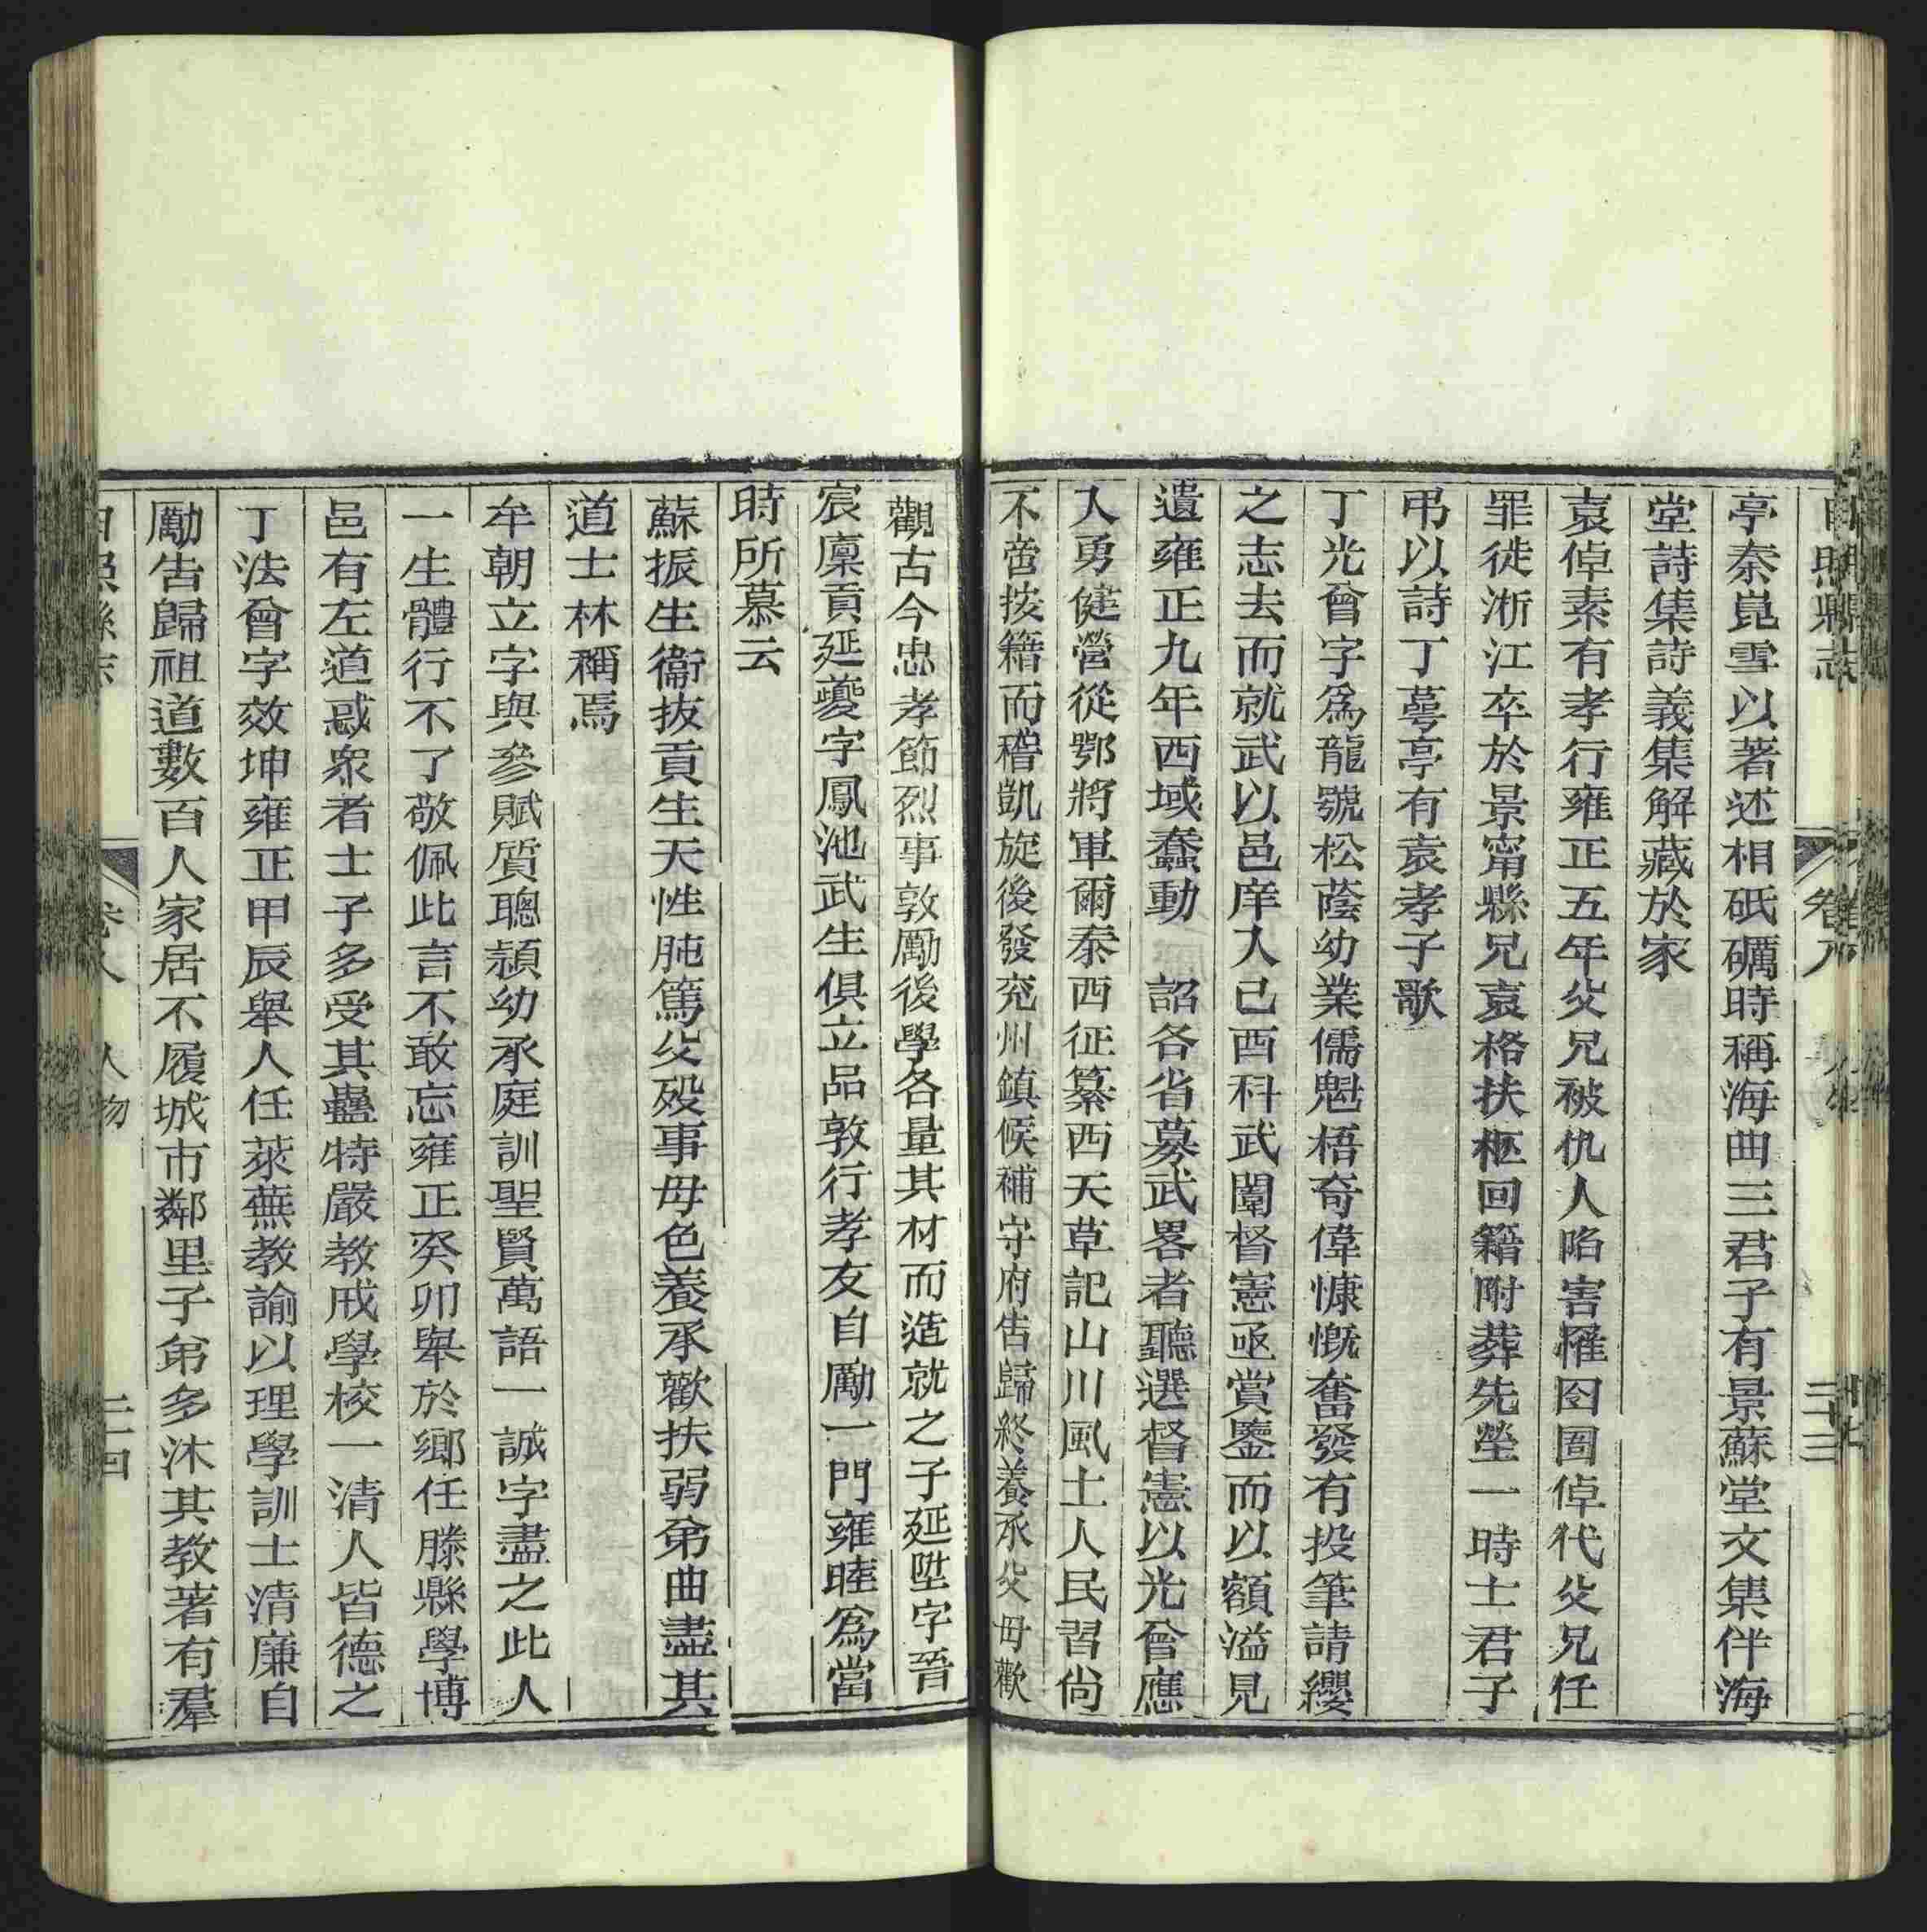 日照縣志
卷八
二十三
亭秦崑雪以著述相砥礪時稱海曲三君子有景蘇堂文集伴海
堂詩集詩義集解藏於家
袁倬素有孝行雍正五年父兄被仇人陷害罹囹圄倬代父兄任
罪徙淅江卒於景甯縣兄袁格扶柩回籍附葬先塋一時士君子
弔以詩丁蕚亭有袁孝子歌
丁光曾字爲龍號松蔭幼業儒魁梧奇偉慷慨奮發有投筆請纓
之志去而就武以邑庠入己酉科武闈督憲亟賞鑒而以額溢見
遺雍正九年西域蠢動 詔各省募武畧者聽選督憲以光曾應
入勇健營從鄂將軍爾泰西征纂西天草記山川風土人民習尙
不啻按籍而稽凱旋後發兖州鎮候補守府告歸終養承父母歡
觀古今忠孝節烈事敦勵後學各量其材而造就之子延陞字晉
宸廩貢延夔字鳳池武生俱立品敦行孝友自勵一門雍睦爲當
時所慕云
蘇振生衞拔貢生天性肫篤父歿事母色養承歡扶弱弟曲盡其
道士林稱焉
牟朝立字與參賦質聰頴幼承庭訓聖賢萬語一誠字盡之此人
一生體行不了敬佩此言不敢忘雍正癸卯舉於鄉任滕縣學博
邑有左道惑衆者士子多受其蠱特嚴教戒學校一清人皆德之
丁法曾字效坤雍正甲辰舉人任萊蕪教諭以理學訓士清廉自
勵告歸祖道數百人家居不履城市鄰里子弟多沐其教著有羣
日照縣志
卷八
人物
二四